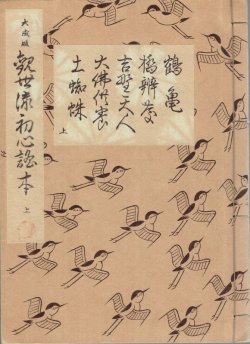 鶴亀
橋辨慶
吉野天人
大佛供養
土蜘蛛
上
大成版
観世流初心謡本 上